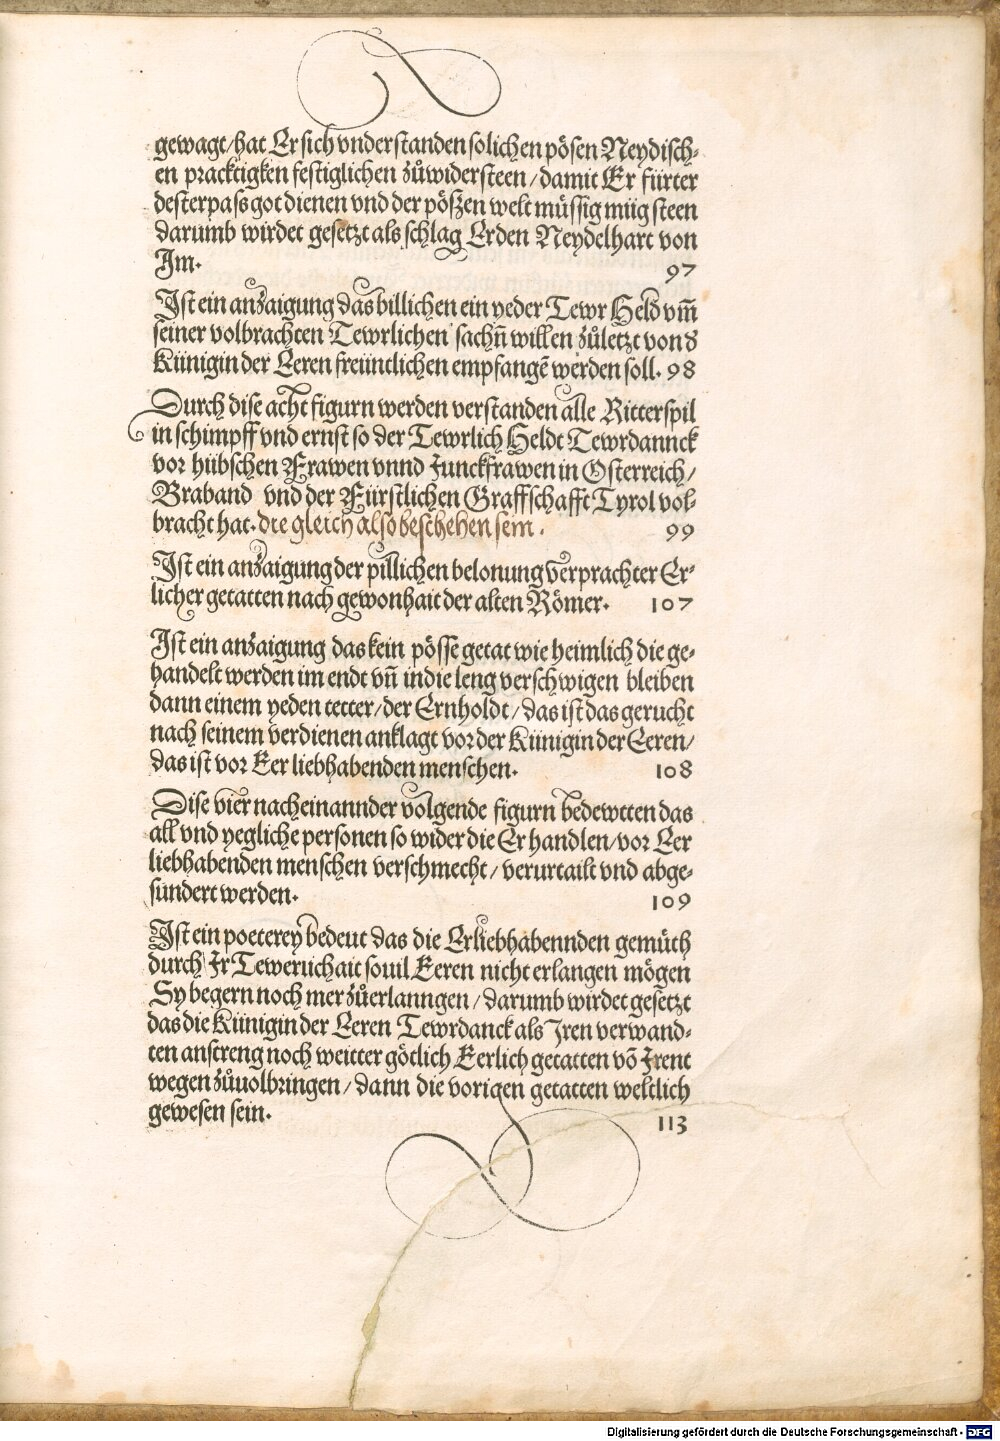 gewagt/hat Er sich vnderstanden solichen pösen Neydisch-
en pracktigken festiglichen zůwidersteen/damit Er fürter
desterpass got dienen vnd der pöszen welt müssig müg steen
darumb wirdet gesetzt als schlag Er den Neydelhart von
Im. 97
Ist ein anzaigung das billichen ein yeder Tewr Held vm̄
seiner volbrachten Tewrlichen sachn̄ willen zůletzt von d
Künigin der Eeren freüntlichen empfangē werden soll. 98
Durch dise acht figurn werden verstanden alle Ritterspil
in schimpff vnd ernst so der Tewrlich Heldt Tewrdannck
vor hübschen Frawen vnnd Junckfrawen in Osterreich/
Braband vnd der Fürstlichen Graffschafft Tyrol vol-
bracht hat. die gleich also beschehen sein. 99
Ist ein anzaigung der pillichen belonung verprachter Er-
licher getatten nach gewonhait der alten Römer. 107
Ist ein anzaigung das kein pösse getat wie heimlich die ge-
handelt werden im endt vn̄ in die leng verschwigen bleiben
dann einem yeden tetter/der Ernholdt/das ist das gerucht
nach seinem verdienen anklagt vor der Künigin der Eeren/
das ist vor Eer liebhabenden menschen. 108
Dise vier nacheinannder volgende figurn bedewtten das
all vnd yegliche personen so wider die Er handlen/vor Eer
liebhabenden menschen verschmecht/verurtailt vnd abge-
sündert werden. 109
Ist ein poeterey bedeut das die Erliebhabennden gemüth
durch Ir Tewerlichait souil Eeren nicht erlangen mögen
Sy begern noch mer zůerlanngen/darumb wirdet gesetzt
das die Künigin der Eeren Tewrdanck als Iren verwand-
ten anstreng noch weitter götlich Eerlich getatten vō Irent
wegen zůuolbringen/dann die vorigen getatten weltlich
gewesen sein. 113
Digitalisierung gefördert durch die Deutsche Forschungsgemeinschaft - DFG